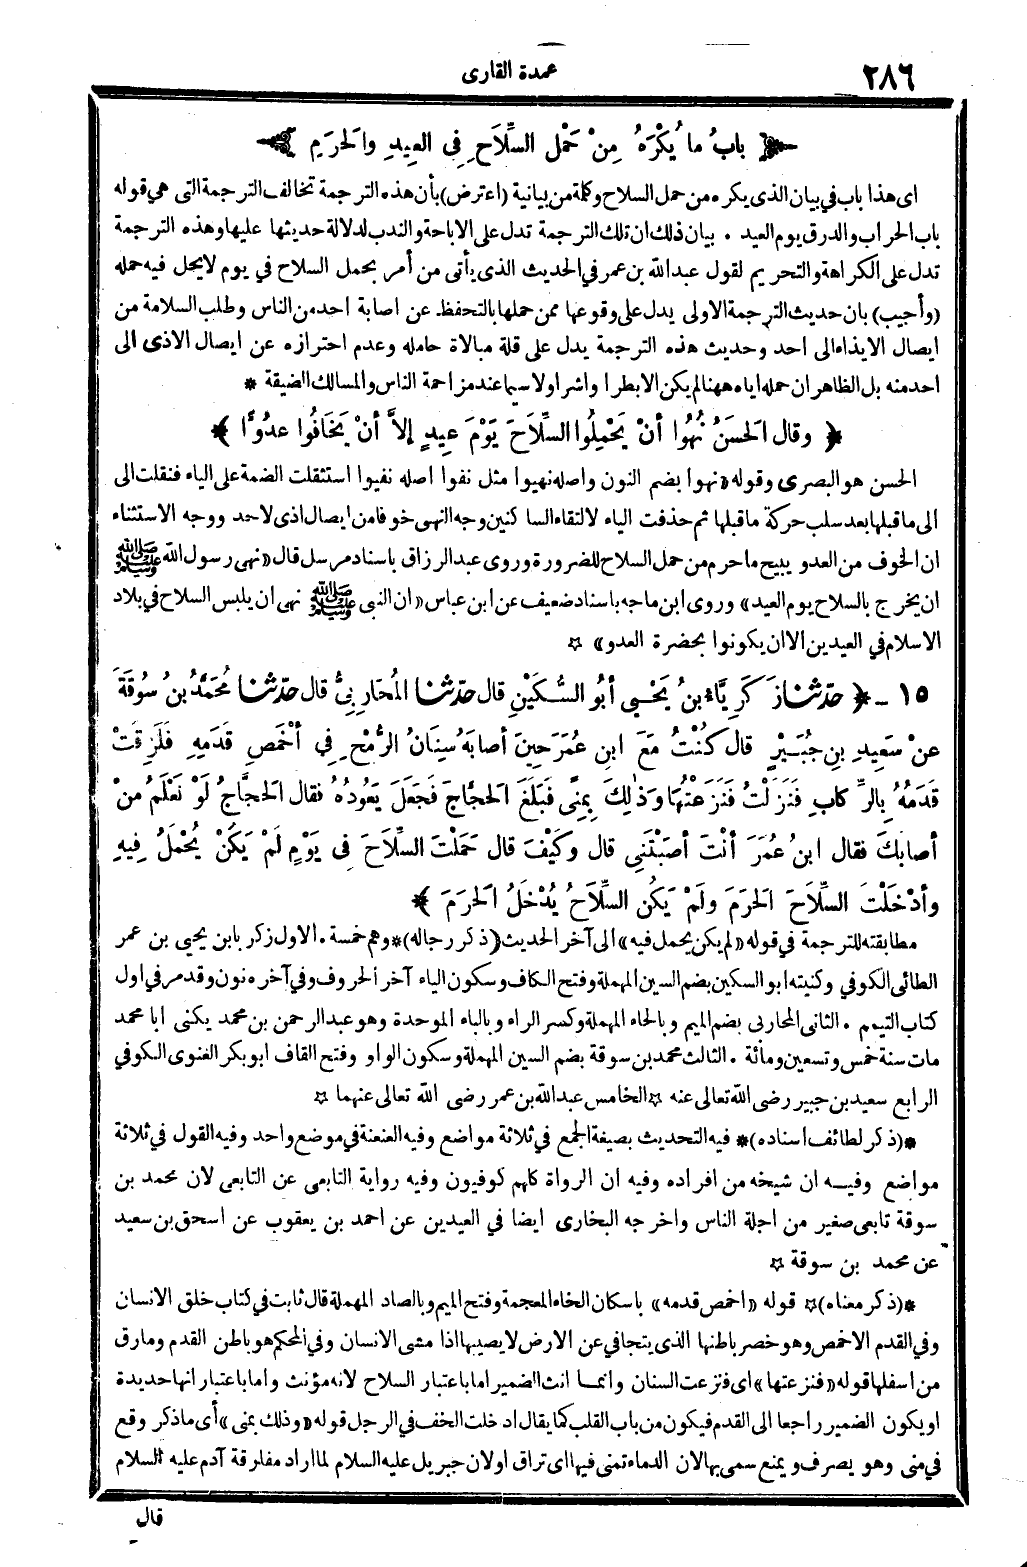 ٢٨٦
عمدة القارى
﴿ بابُ ما يُكْرَهُ مِنْ حَمْلِ السِّلَاحِ فِى العِيدِ والحَرَمِ ﴾
اى هذا باب في بيان الذى يكره من حمل السلاح وكلمة من بيانية (اعترض) بأن هذه الترجمة تخالف الترجمة التى هي قوله
باب الحراب والدرق يوم العيد . بيان ذلك ان تلك الترجمة تدل على الاباحة والندب لدلالة حديثها عليها وهذه الترجمة
تدل على الكراهة والتحريم لقول عبد الله بن عمر في الحديث الذى يأتى من أمر بحمل السلاح في يوم لا يحل فيه حمله
(وأجيب) بان حديث الترجمة الاولى يدل على وقوعها ممن حملها بالتحفظ عن اصابة احد من الناس وطلب السلامة من
ايصال الايذاء الى احد وحديث هذه الترجمة يدل على قلة مبالاة حامله وعدم احترازه عن ايصال الاذى الى
احد منه بل الظاهر ان حمله اياه ههنا لم يكن الا بطرا واشرا ولا سيما عند مزاحمة الناس والمسالك الضيقة *
﴿ وقال الحَسَنُ نُهُوا أنْ يَحْمِلُوا السِّلَاحَ يَوْمَ عِيدٍ إلاَّ أنْ يَخَافُوا عدُوًّا ﴾
الحسن هو البصرى وقوله «نهوا بضم النون واصله نهيوا مثل نفوا اصله نفيوا استثقلت الضمة على الياء فنقلت الى
الى ما قبلها بعد سلب حركة ما قبلها ثم حذفت الياء لالتقاء الساكنين وجه النهى خوفا من ايصال اذى لاحد ووجه الاستثناء
ان الخوف من العدو يبيح ما حرم من حمل السلاح للضرورة وروى عبد الرزاق باسناد مرسل قال «نهى رسول الله ﷺ
ان يخرج بالسلاح يوم العيد» وروى ابن ماجه باسناد ضعيف عن ابن عباس «ان النبى ﷺ نهى ان يلبس السلاح في بلاد
الاسلام في العيدين الا ان يكونوا بحضرة العدو» ☆
١٥ - ﴿ حدّثنا زَكَرِيَّاءُ بنُ يَحْيى أبُو السُّكَيْنِ قال حدّثنا المُحَارِبىُّ قال حدّثنا مُحَمَّدُ بنُ سُوقَةَ
عنْ سَعِيدِ بنِ جُبَيْرٍ قال كُنْتُ مَعَ ابنِ عُمَرَ حِينَ أصابَهُ سِنَانُ الرُّمْحِ فِي أخْمَصِ قَدَمِهِ فَلَزِقَتْ
قَدَمُهُ بِالرِّكابِ فَنَزَلْتُ فَنَزَعْتُهَا وَذٰلِكَ بِمِنًى فبَلَغَ الحجَّاجَ فَجَعَلَ يَعُودُهُ فقال الحجَّاجُ لَوْ نَعْلَمُ منْ
أصابكَ فقال ابنُ عُمَرَ أنْتَ أصَبْتَنِي قال وكَيْفَ قال حَمَلْتَ السِّلَاحَ فِى يَوْمٍ لَمْ يَكُنْ يُحْمَلُ فِيهِ
وأدْخَلْتَ السِّلَاحَ الحَرَمَ ولَمْ يَكُنِ السِّلَاحُ يُدْخَلُ الحَرَمَ ﴾
مطابقته للترجمة في قوله «لم يكن يحمل فيه» الى آخر الحديث (ذكر رجاله) * وهم خمسة . الاول زكريا بن يحيى بن عمر
الطائى الكوفي وكنيته ابو السكين بضم السين المهملة وفتح الكاف وسكون الياء آخر الحروف وفي آخره نون وقد مر في اول
كتاب التيمم . الثانى المحاربى بضم الميم وبالحاء المهملة وكسر الراء وبالباء الموحدة وهو عبد الرحمن بن محمد يكنى ابا محمد
مات سنة خمس وتسعين ومائة . الثالث محمد بن سوقة بضم السين المهملة وسكون الواو وفتح القاف ابو بكر الغنوى الكوفي
الرابع سعيد بن جبير رضى الله تعالى عنه ☆ الخامس عبد الله بن عمر رضى الله تعالى عنهما ☆
*(ذكر لطائف اسناده)* فيه التحديث بصيغة الجمع في ثلاثة مواضع وفيه العنعنة في موضع واحد وفيه القول في ثلاثة
مواضع وفيه ان شيخه من افراده وفيه ان الرواة كلهم كوفيون وفيه رواية التابعى عن التابعى لان محمد بن
سوقة تابعى صغير من اجلة الناس واخرجه البخارى ايضا في العيدين عن احمد بن يعقوب عن اسحق بن سعيد
عن محمد بن سوقة ☆
*(ذكر معناه)☆ قوله «اخمص قدمه» باسكان الخاء المعجمة وفتح الميم وبالصاد المهملة قال ثابت في كتاب خلق الانسان
وفي القدم الاخمص وهو خصر باطنها الذى يتجافي عن الارض لا يصيبها اذا مشى الانسان وفي المحكم هو باطن القدم وما رق
من اسفلها قوله «فنزعتها» اى فنزعت السنان وانما انث الضمير اما باعتبار السلاح لانه مؤنث واما باعتبار انها حديدة
او يكون الضمير راجعا الى القدم فيكون من باب القلب كما يقال ادخلت الخف في الرجل قوله «وذلك بمنى» أى ما ذكر وقع
في منى وهو يصرف ويمنع سمى بها لان الدماء تمنى فيها اى تراق او لان جبريل عليه السلام لما اراد مفارقة آدم عليه السلام
قال